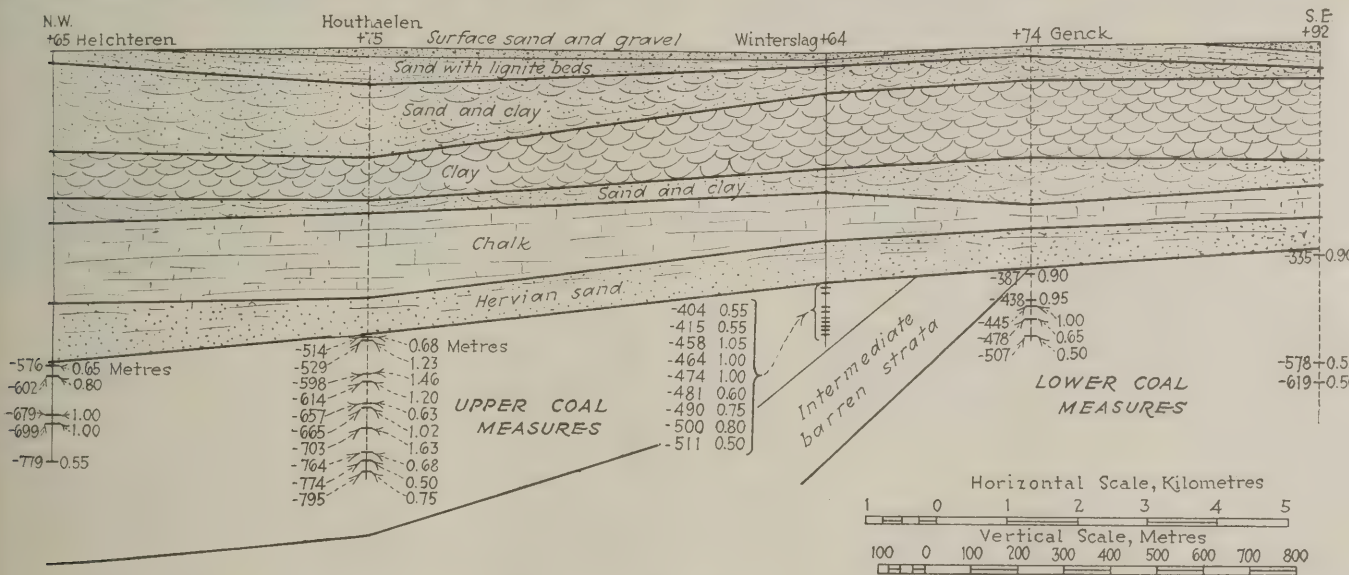 N.W.
+65 Helchteren
Houthaelen
+75
Surface sand and gravel
Winterslag +64
+74 Genck
S.E
+92
Sand with lignite beds
Sand and clay
Clay
Sand and clay
Chalk
Hervian sand
-576 0.65 Metres
-602 0.80
-679 1.00
-699 1.00
-779 0.55
-514 0.68 Metres
-529 1.23
-598 1.46
-614 1.20
-657 0.63
-665 1.02
-703 1.63
-764 0.68
-774 0.50
-795 0.75
UPPER COAL
MEASURES
-404 0.55
-415 0.55
-458 1.05
-464 1.00
-474 1.00
-481 0.60
-490 0.75
-500 0.80
-511 0.50
Intermediate
barren strata
-387 0.90
-438 0.95
-445 1.00
-478 0.65
-507 0.50
LOWER COAL
MEASURES
-335 0.90
-578 0.5
-619 0.50
Horizontal Scale, Kilometres
1 0 1 2 3 4 5
Vertical Scale, Metres
100 0 100 200 300 400 500 600 700 800